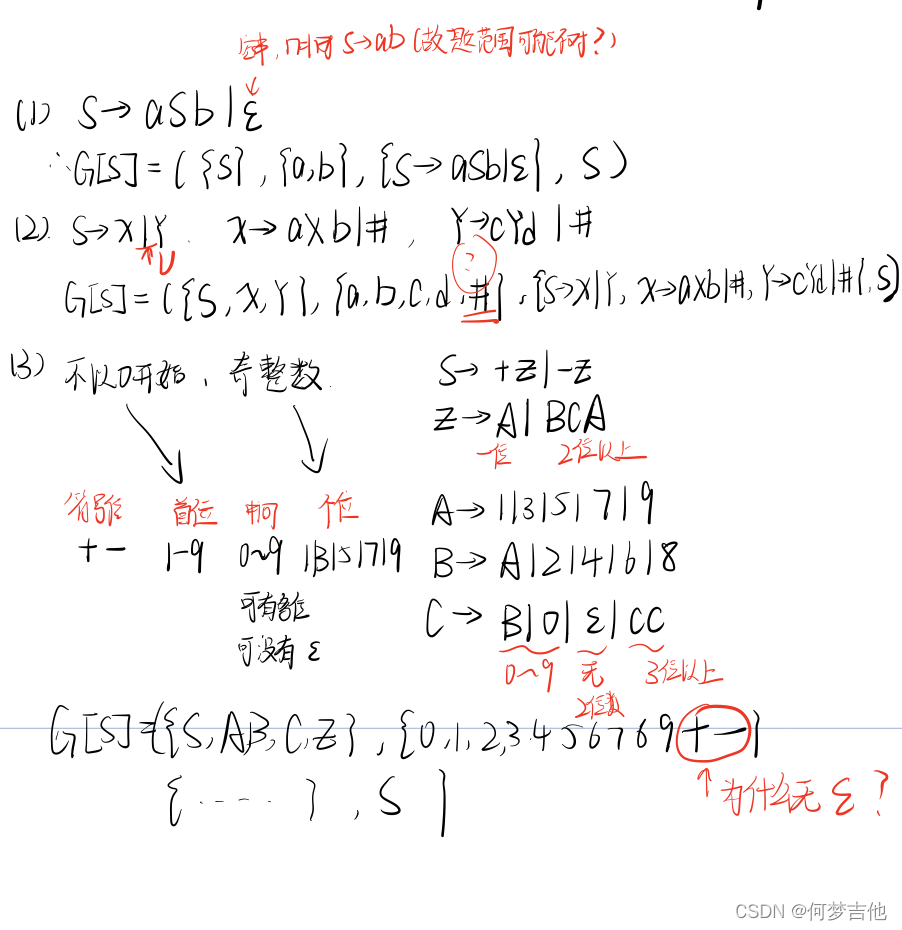 S→ab
(1) S→aSb|ε
∴G[S]=({S},{a,b},{S→aSb|ε},S)
(2). S→X|Y. X→aXb|#, Y→cYd|#
?
G[S]=({S,X,Y},{a,b,c,d,#},{S→X|Y,X→aXb|#,Y→cYd|#},S)
(3) 不以0开始、奇整数.
S→+Z|-Z
Z→A|BCA
一位 2位以上
首位 中间 个位
A→1|3|5|7|9
+ - 1-9 0~9 1|3|5|7|9
B→A|2|4|6|8
可有多位
C→B|0|ε|CC
可没有 ε
0~9 无 3位以上
2位数
G[S]=({S,A,B,C,Z},{0,1,2,3 4 5 6 7 6 9 + -}
{.....},S}
↑为什么无 ε?
CSDN @何梦吉他